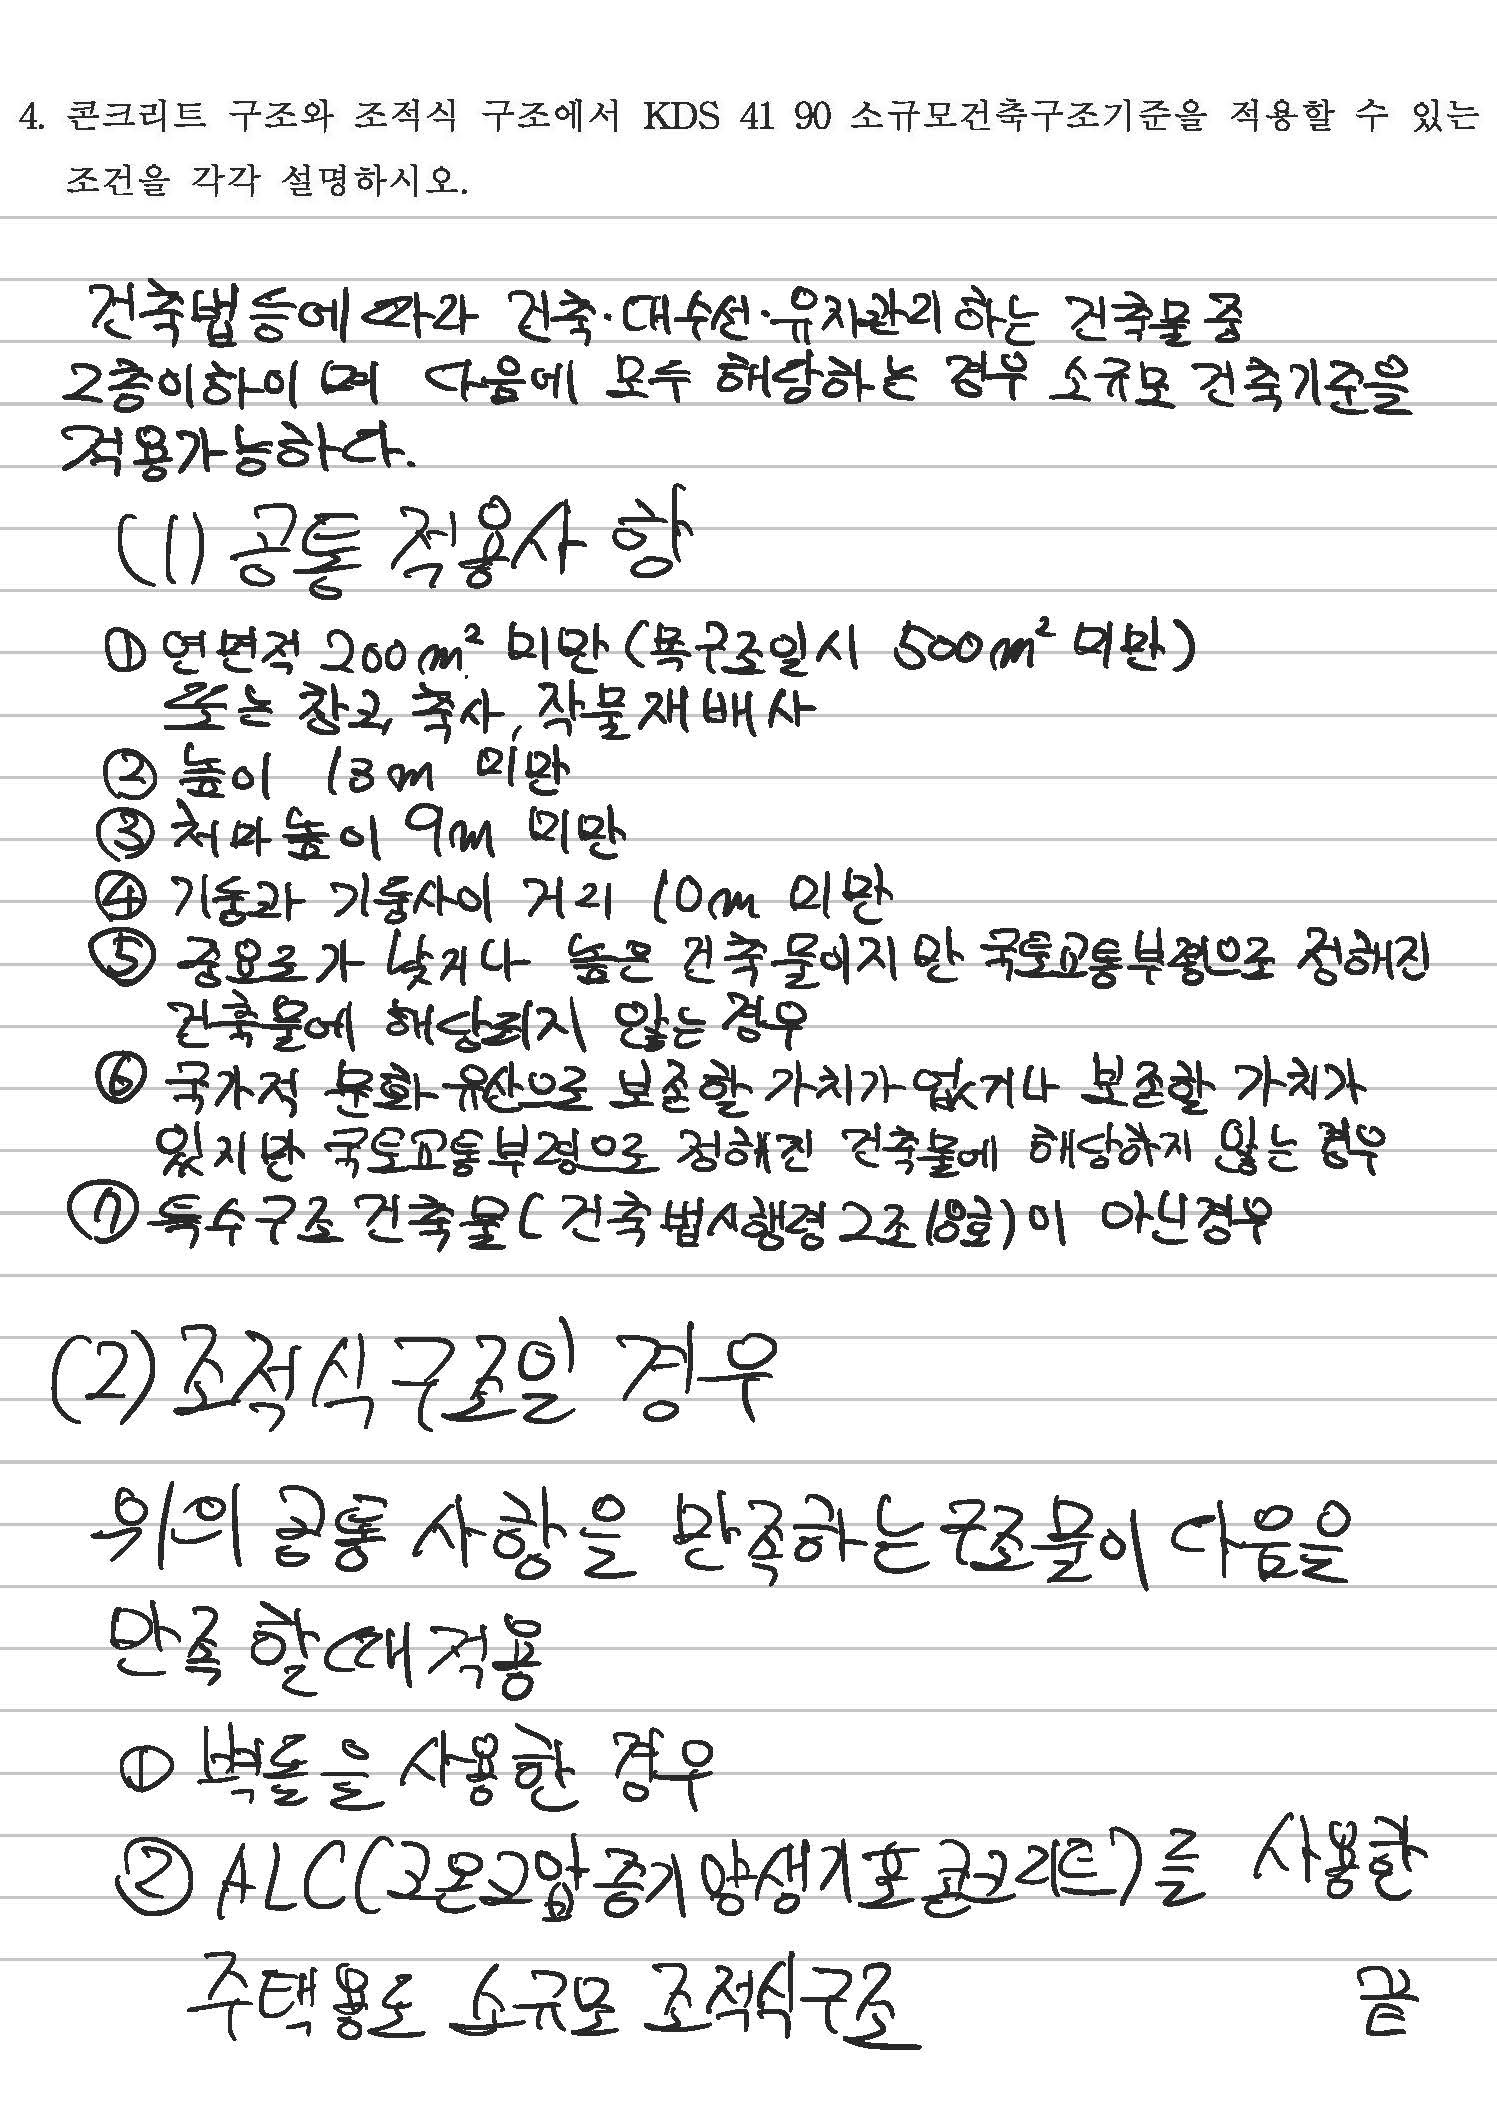 4. 콘크리트 구조와 조적식 구조에서 KDS 41 90 소규모건축구조기준을 적용할 수 있는
조건을 각각 설명하시오.
건축법 등에 따라 건축·대수선·유지관리하는 건축물 중
2층이하이며 다음에 모두 해당하는 경우 소규모 건축기준을
적용가능하다.
(1) 공통 적용사항
① 연면적 200m² 미만 (목구조일시 500m² 미만)
또는 창고, 축사, 작물재배사
② 높이 13m 미만
③ 처마높이 9m 미만
④ 기둥과 기둥사이 거리 10m 미만
⑤ 중요도가 낮거나 높은 건축물이지만 국토교통부령으로 정해진
건축물에 해당되지 않는 경우
⑥ 국가적 문화유산으로 보존할 가치가 없거나 보존할 가치가
있지만 국토교통부령으로 정해진 건축물에 해당하지 않는 경우
⑦ 특수구조 건축물(건축법시행령 2조 18호)이 아닌경우
(2) 조적식 구조일 경우
위의 공통 사항을 만족하는 구조물이 다음을
만족 할때 적용
① 벽돌을 사용한 경우
② ALC(고온고압증기양생기포콘크리트)를 사용한
주택용도 소규모 조적식구조 끝